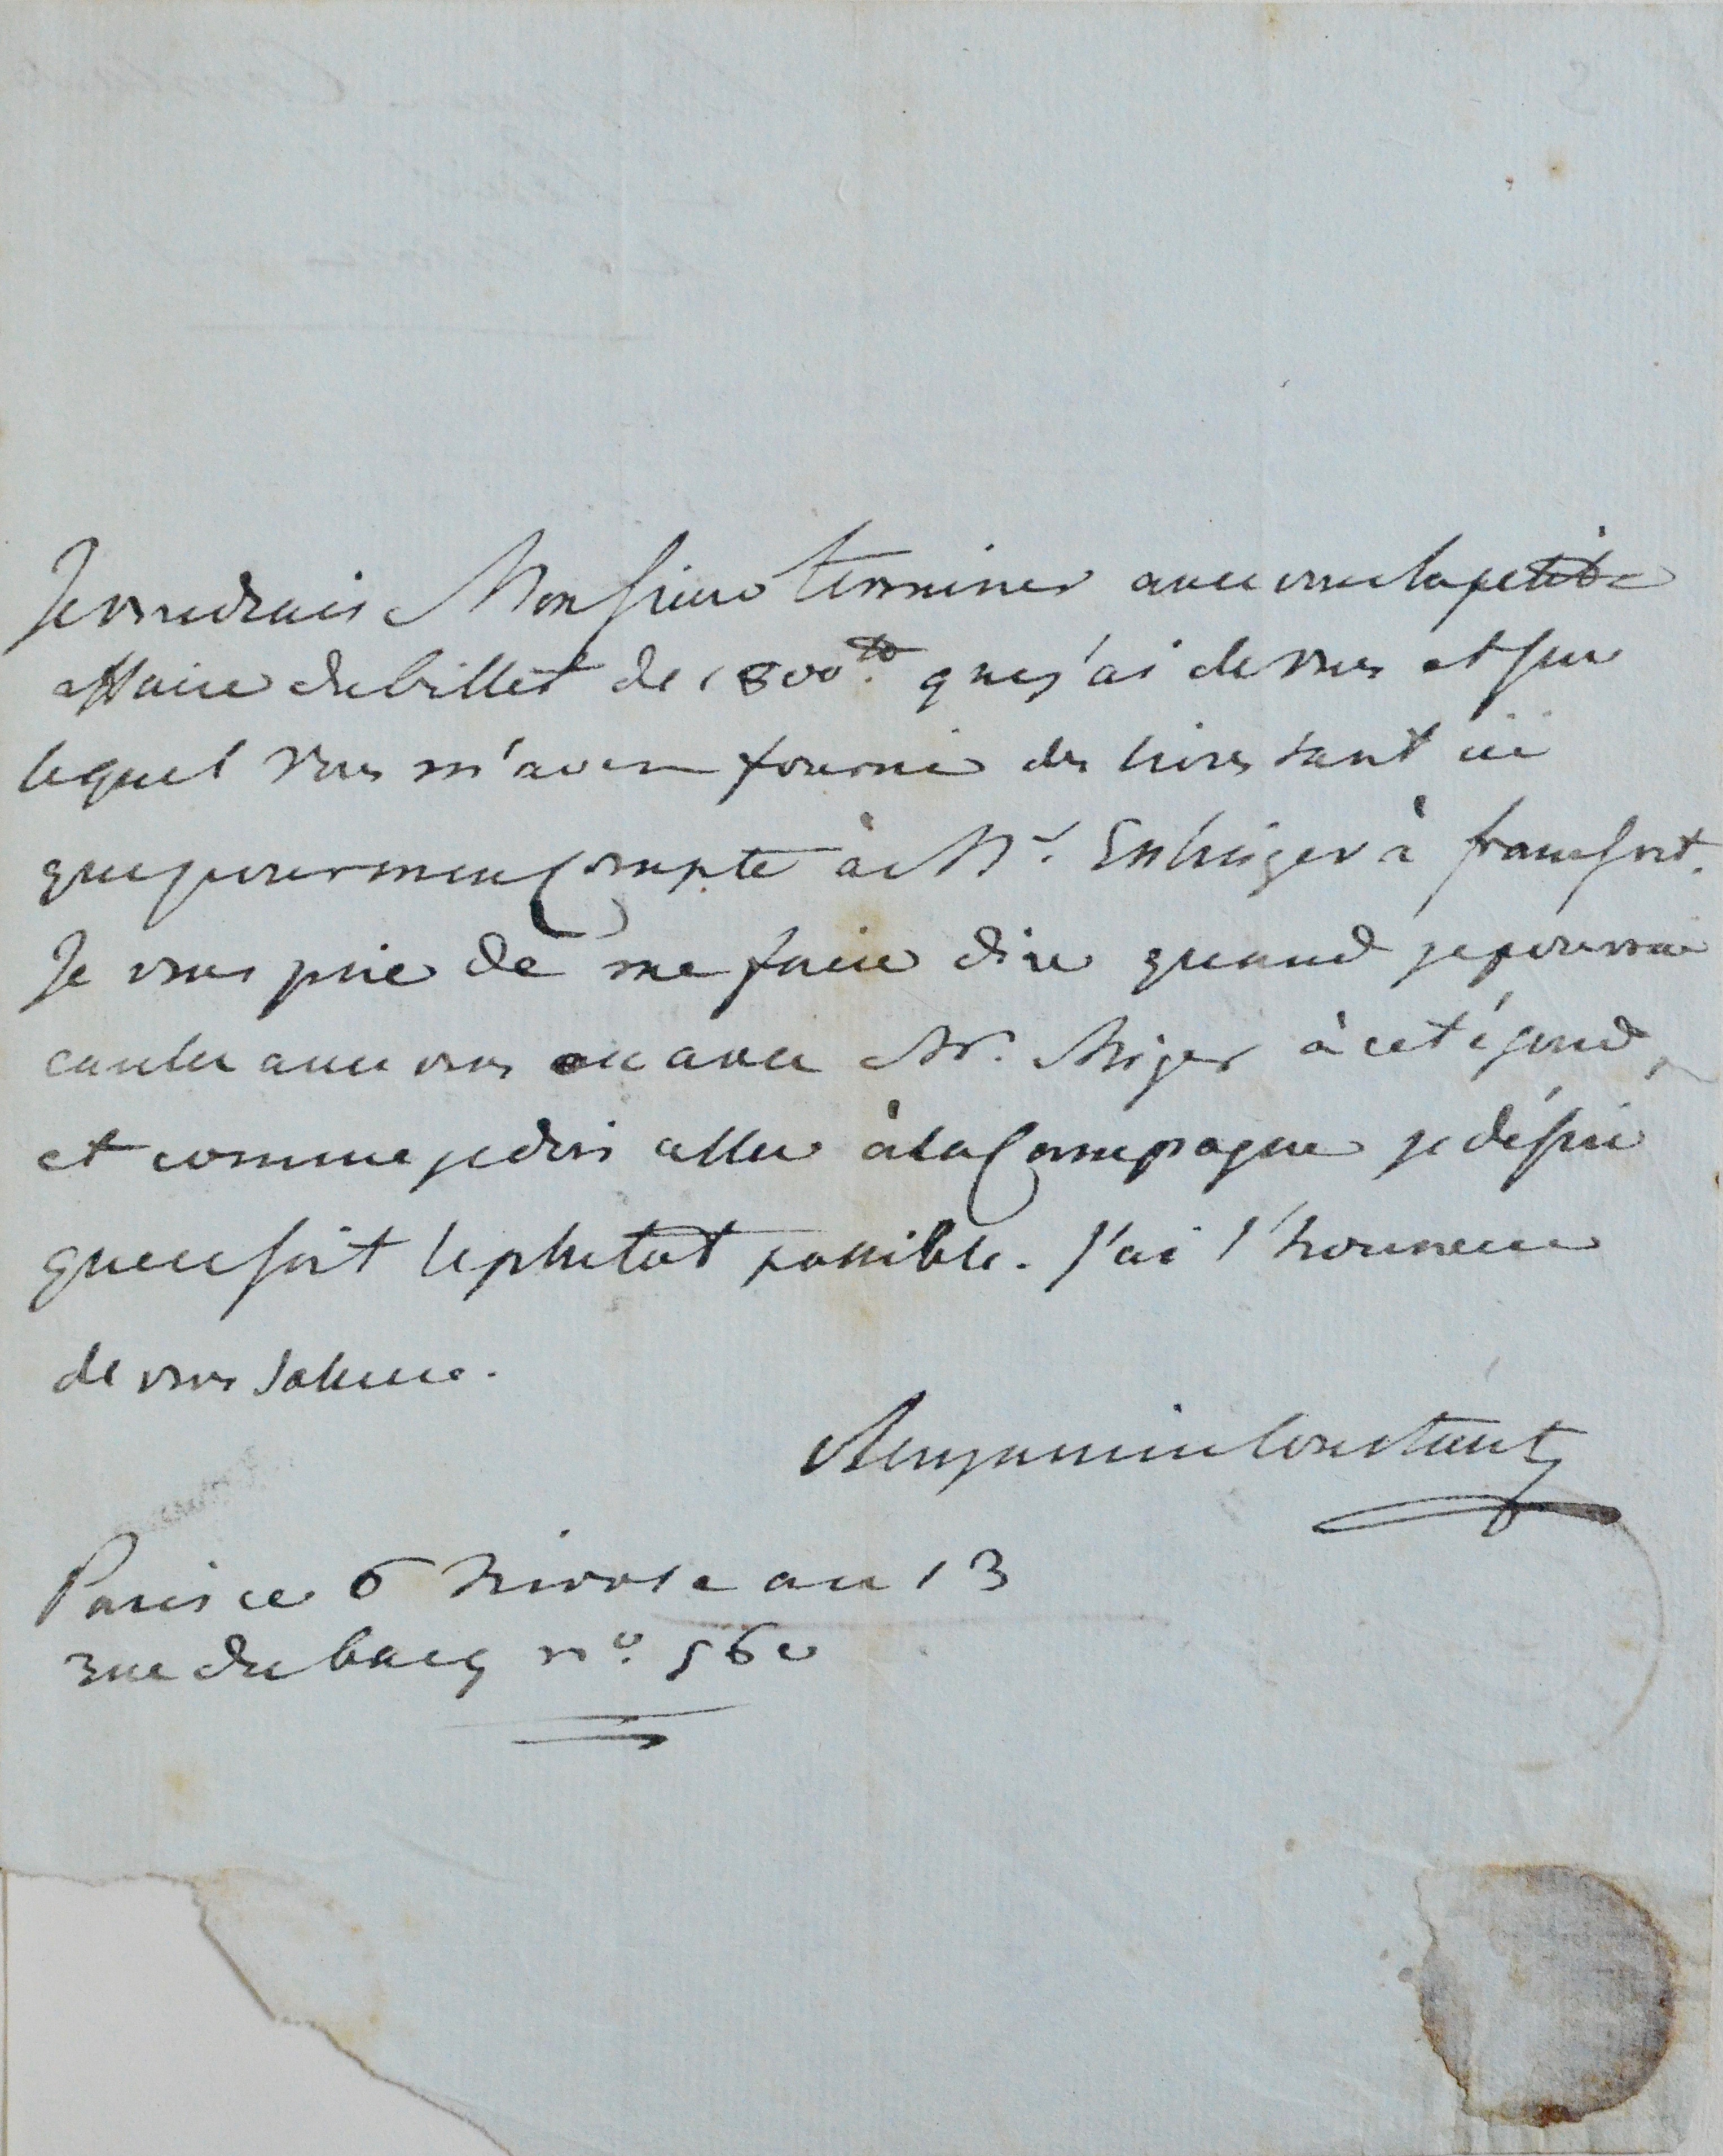 Je voudrais Monsieur terminer avec vous la petite
affaire du billet de 1800 ₶. que j'ai de vous et sur
lequel vous m'avez fourni des livres tant ici
que pour mon Compte à Mr. Esslinger à francfort.
Je vous prie de me faire dire quand je pourrai
causer avec vous ou avec Mr. à cet égard,
et comme je dois aller à la Campagne je désire
que ce soit le plutot possible. J'ai l'honneur
de vous saluer.
Benjamin Constant
Paris ce 6 Nivose an 13
rue du bacq no. 560